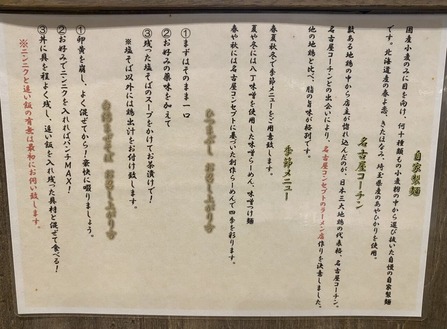 自家製麺
国産小麦のみに目を向け、何十種類もの小麦粉の中から選び抜いた自慢の自家製麺
です。北海道産の春よ恋、きたほなみ、埼玉県産のあやひかりを使用。
名古屋コーチン
数ある地鶏の中から店主が惚れ込んだのが、日本三大地鶏の代表格、名古屋コーチン。
名古屋コーチンとの出会いにより、名古屋コンセプトのラーメン店作りを決意しました。
他の地鶏と比べ、脂の旨味が格別です。
季節メニュー
春夏秋冬で季節メニューをご用意致します。
夏や冬には八丁味噌を使用した味噌らーめん、味噌つけ麺
春や秋には名古屋コンセプトに基づいた創作らーめんで四季を彩ります。
お召し上がり方
①まずはそのまま一口
②お好みの薬味を加えて
③残った塩そばのスープをかけてお茶漬けで!
※塩そば以外には鶏出汁をお付け致します。
台湾まぜそば お召し上がり方
①卵黄を崩し、よく混ぜてから!豪快に啜りましょう。
②お好みでニンニクを入れればパンチMAX!
③丼に具を程よく残し、追い飯を入れ残った具材と混ぜて食べる!
※ニンニクと追い飯の有無は最初にお伺い致します。